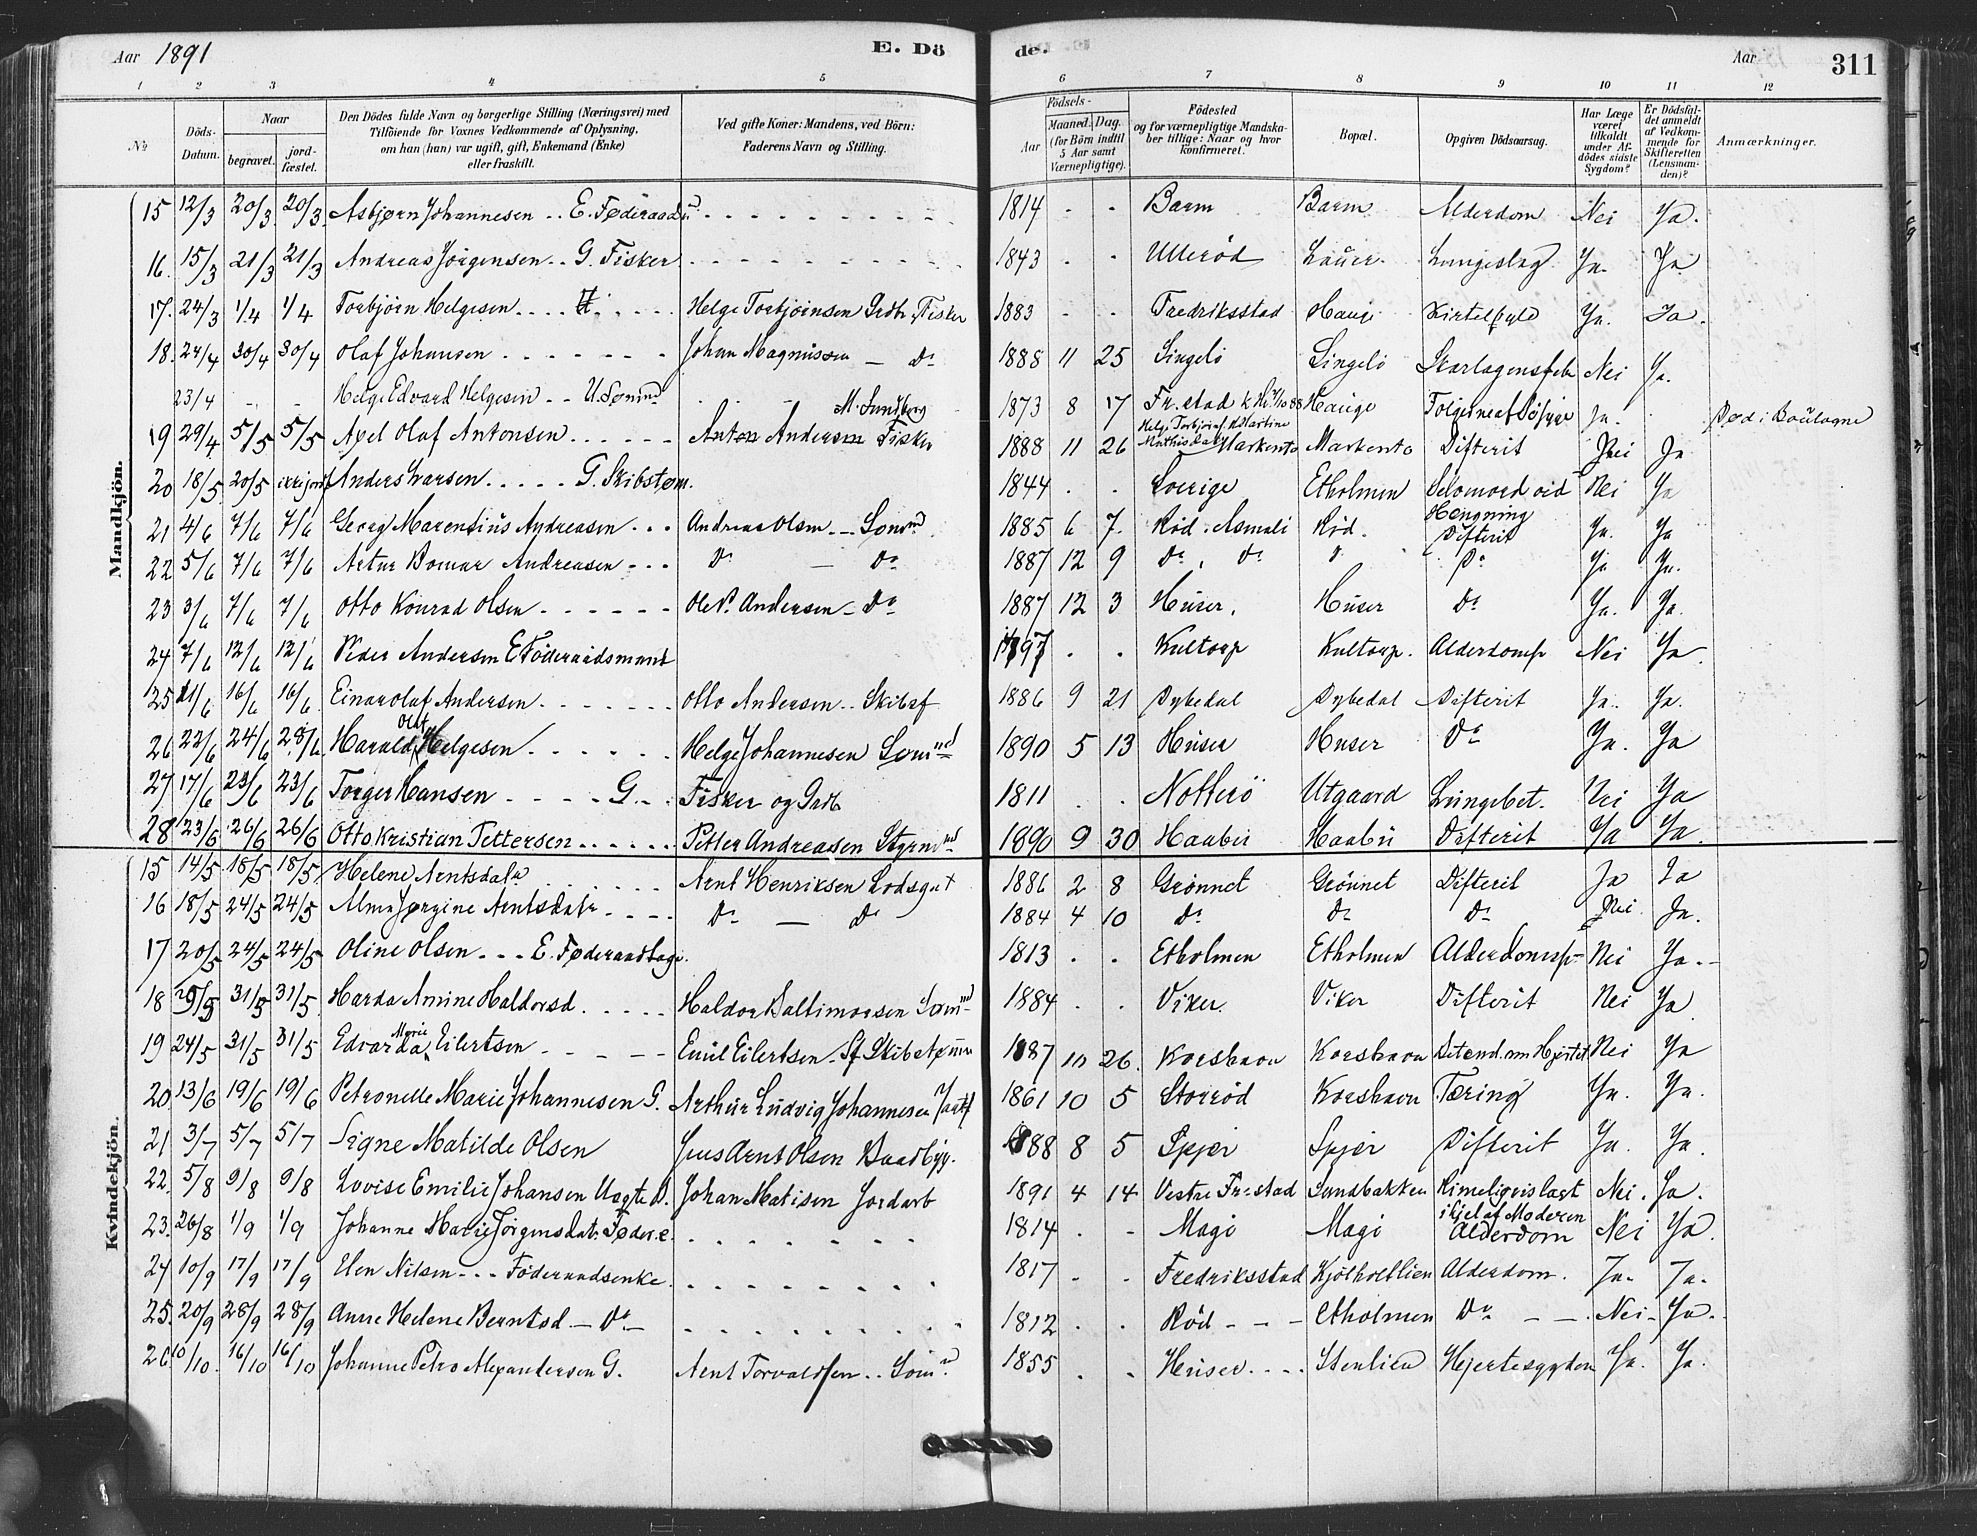 Aar 1891 E. Dö de. Aar 311
1 2 3 4 5 6 7 8 9 10 11 12
№ Döds-Datum. Naar begravet. jord-fæstet. Den Dödes fulde Navn og borgerlige Stilling (Næringsvei) med Tilföiende for Voxnes Vedkommende af Oplysning, om han (hun) var ugift, gift, Enkemand (Enke) eller fraskilt. Ved gifte Koner: Mandens, ved Börn: Faderens Navn og Stilling. Födsels- Aar Maaned. Dag. (for Börn indtil 5 Aar samt Værnepligtige). Födested og for værnepligtige Mandskaber tillige: Naar og hvor konfirmeret. Bopæl. Opgiven Dödsaarsag. Har Læge været tilkaldt under Afdödes sidste Sygdom? Er Dödsfaldet anmeldt af Vedkommende for Skifteretten (Lensmanden)? Anmærkninger.
Mandkjön.
15 12/3 20/3 20/3 Asbjørn Johannesen .. E. Føderaad 1814 Barm Barm Alderdom Nei Ja.
16. 15/3 21/3 21/3 Andreas Jörgensen .. G. Fisker 1843 Ullerød Lauer Lungeslag Ja. Ja
17. 24/3 1/4 1/4 Torbjörn Helgesen Helge Torbjörnsen Grdb. Fisker 1883 Fredriksstad Hauge Kirtelsyge Ja. Ja.
18. 24/4 30/4 30/4 Olaf Johansen Johan Magnussen — Do 1888 11 25 Singelö Singelö Skarlagensfeber Nei Ja.
23/4 Helge Edvard Helgesen .. U. Sömd 1873 8 17 Fr.stad Hauge Følgerne af Ja. Død i Boulogne
M. Sundberg
19 29/4 5/5 5/5 Axel Olaf Antonsen Anton Andersen Fisker 1888 11 26 Markento Markento Difterit Nei Ja
20 18/5 20/5 ikke jordf Anders Ivarsen G. Skibstøm. 1844 Sverige Etholmen Selvmord ved Hengning Nei Ja
21 4/6 7/6 7/6 Georg Marensius Andreasen Andreas Olsen — Sømd 1885 6 7. Rød. Asmalö Rød. Difterit Ja. Ja
22 5/6 7/6 7/6 Artur Bomar Andreasen Do — Do 1887 12 9 Do. Do. Do Ja Ja.
23 3/6 7/6 7/6 Otto Konrad Olsen Ole P. Andersen — Do 1887 12 3 Huser. Huser Do Ja. Ja.
24 7/6 12/6 12/6 Peder Andersen E Föderaadsmand 1797 Kultorp Kultorp. Alderdomsf Nei Ja.
25 11/6 16/6 16/6 Einar Olaf Andersen Otto Andersen .. Skibsf 1886 9 21 Dybedal Dybedal Difterit Ja. Ja.
26 22/6 24/6 28/6 Harald Olaf Helgesen Helge Johannesen Sømnd 1890 5 13 Huser Huser Do Ja. Ja
27 17/6 23/6 23/6 Torger Hansen G. Fisker og Grdb 1811 Notterö Utgaard Lungebet. Nei Ja
28 23/6 26/6 26/6 Otto Kristian Pettersen Petter Andreassen Styrmnd 1890 9 30 Haabu Haabu Difterit Ja Ja.
Kvindekjön.
15 14/5 18/5 18/5 Helene Arntsdatr Arnt Henriksen Lodsgut 1886 2 8 Grönnet Grönnet Difterit Ja Ja
16 18/5 24/5 24/5 Alma Jørgine Arntsdatr Do — Do 1884 4 10 Do Do Do Nei. Ja.
17 20/5 24/5 24/5 Oline Olsen E. Føderaadtag. 1813 Etholmen Etholmen Alderdomsf Nei Ja.
18 29/5 31/5 31/5 Harda Amine Haldorsd. Haldor Baltimorsen Sømnd 1884 Viker. Viker Difterit Nei Ja
19 24/5 31/5 31/5 Edvarda Marie Eilertsen Emil Eilertsen — Skibstømm 1887 10 26. Korshavn Korshavn Betend. om Hjertet Nei Ja
20 13/6 19/6 19/6 Petronelle Marie Johannesen G. Arthur Ludvig Johannesen 1861 10 5 Storrød Korshavn Tæring Ja. Ja.
21 3/7 5/7 5/7 Signe Matilde Olsen Jens Arnt Olsen Baadbyg. 1888 8 5 Spjær Spjær Difterit Ja. Ja.
22. 5/8 9/8 9/8 Lovise Emilie Johansen Uægte D. Johan Matisen Jordarb 1891 4 14 Vestre Fr-stad Sandbakken Rimeligvis lagt ihjel af Moderen Nei. Ja.
23. 26/8 1/9 1/9 Johanne Marie Jörgensdatr. Føder.e. 1814 Magö Magö Alderdom Nei Ja.
24 10/9 17/9 17/9 Elen Nilsen Föderaadsenke 1817 Fredriksstad Kjölholtlien Alderdom. Ja. Ja.
25. 20/9 28/9 28/9 Anne Helene Berntsd — Do — 1812 Rød Etholmen Do Nei Ja.
26 10/10. 16/10 16/10 Johanne Petra Alexandersen G. Arnt Torvaldsen .. Sømd 1855 Huser Stenlien Hjertesygdom Ja. Ja.